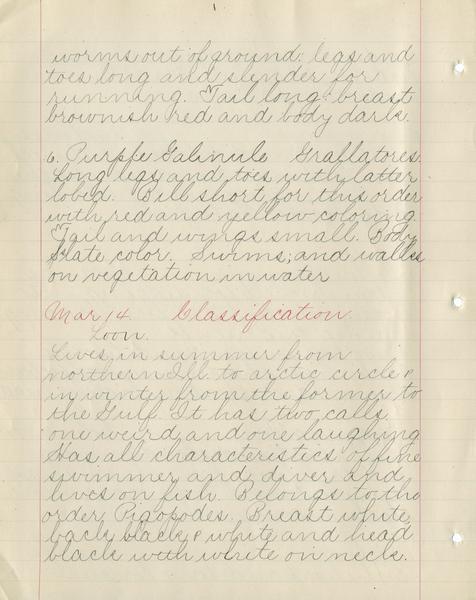 worms out of ground: legs and
toes long and slender for
running. Tail long: breast
brownish red and body dark.
6. Purple Galinule Grallatores.
Long legs and toes with latter
lobed. Bill short for this order
with red and yellow coloring
Tail and wings small. Body
slate color. Swims, and walks
on vegetation in water
Mar 14. Classification.
Loon.
Lives, in summer from
northern Ill. to arctic circle &
in winter from the former to
the Gulf. It has two calls
one weird and one laughing
Has all characteristics of fine
swimmer and diver and
lives on fish. Belongs to the
order Pigopodes. Breast white,
back black & white and head
black with white on neck.